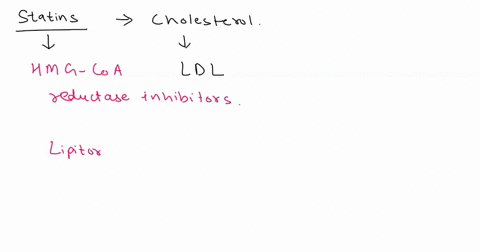 Statins → Cholesterol.
↓ ↓
HMG-CoA LDL
reductase inhibitors.
Lipitor